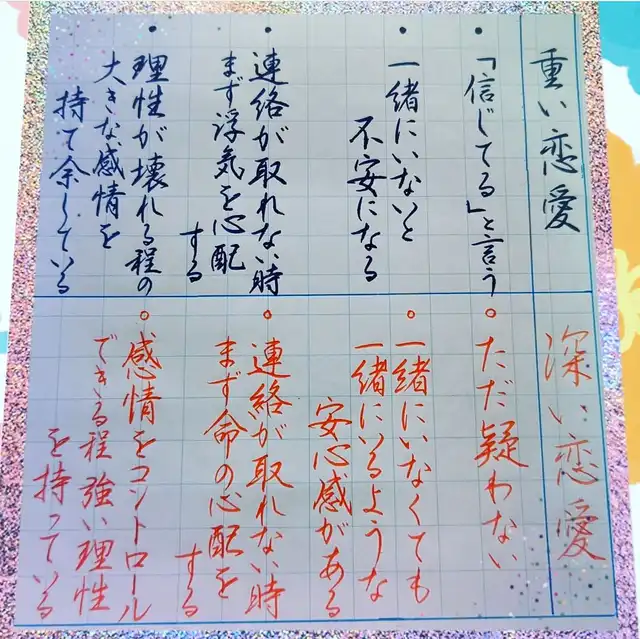 重い恋愛
・「信じてる」と言う
・一緒にいないと
不安になる
・連絡が取れない時
まず浮気を心配
する
・理性が壊れる程の
大きな感情を
持て余している
深い恋愛
○ただ疑わない
○一緒にいなくても
一緒にいるような
安心感がある
○連絡が取れない時
まず命の心配を
する
○感情をコントロール
できる程強い理性
を持っている